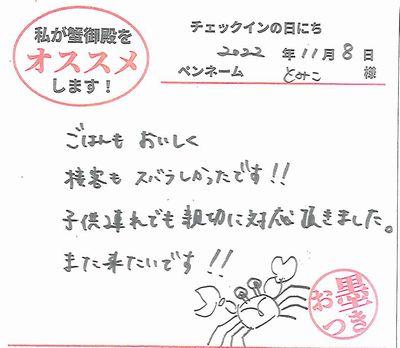 私が蟹御殿を
オススメ
します!
チェックインの日にち
2022 年 11 月 8 日
ペンネーム とみこ 様
ごはんも おいしく
接客も スバラしかったです!!
子供連れでも親切に対応頂きました。
また来たいです!!
お墨つき